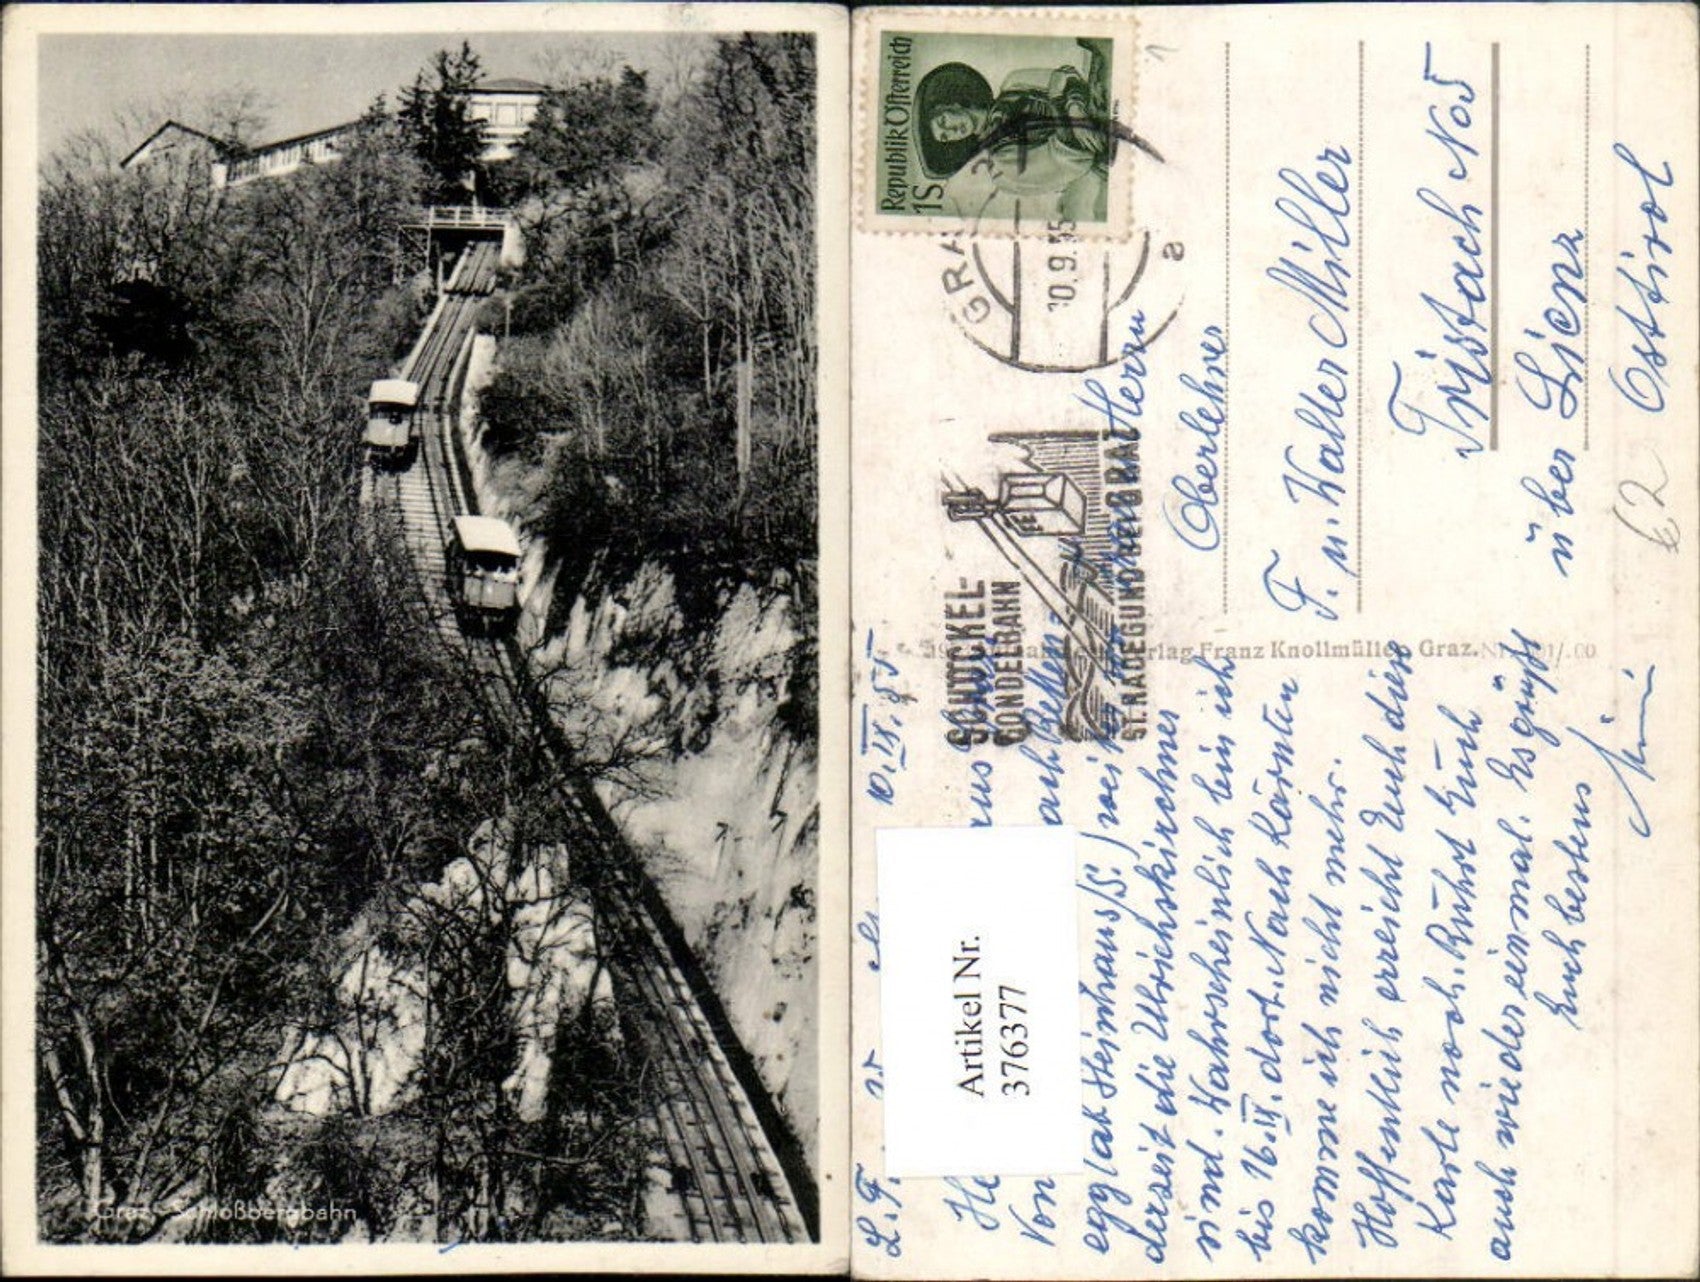 Graz, Schloßbergbahn
Republik Österreich
1S
GRAZ
10.9.55
a
SCHÖCKEL-
GONDELBAHN
ST. RADEGUND BEI GRAZ
Verlag Franz Knollmüller, Graz.
Artikel Nr.
376377
10.IX.55
L. F.
aus
Von
egg (ab Steinhaus/S.) weil
derzeit die Ulrichskirchner
sind. Wahrscheinlich bin ich
bis 16.IX. dort. Nach Kärnten
komme ich nicht mehr.
Hoffentlich erreicht Euch diese
Karte noch. Rührt Euch
auch wieder einmal. Es grüßt
Euch bestens
Herrn
Oberlehrer
F. u. Walter Miller
Tristach No 5
über Lienz
Osttirol
62